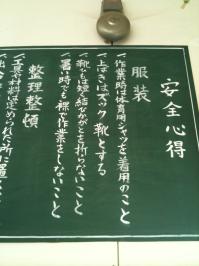 安全心得
服装
作業時は体育用シャツを着用のこと
上ばきはズック靴とする
靴ひもは短く結びかがとを折らないこと
暑い時でも裸で作業をしないこと
整理整頓
工具や材料は定められた所に置く